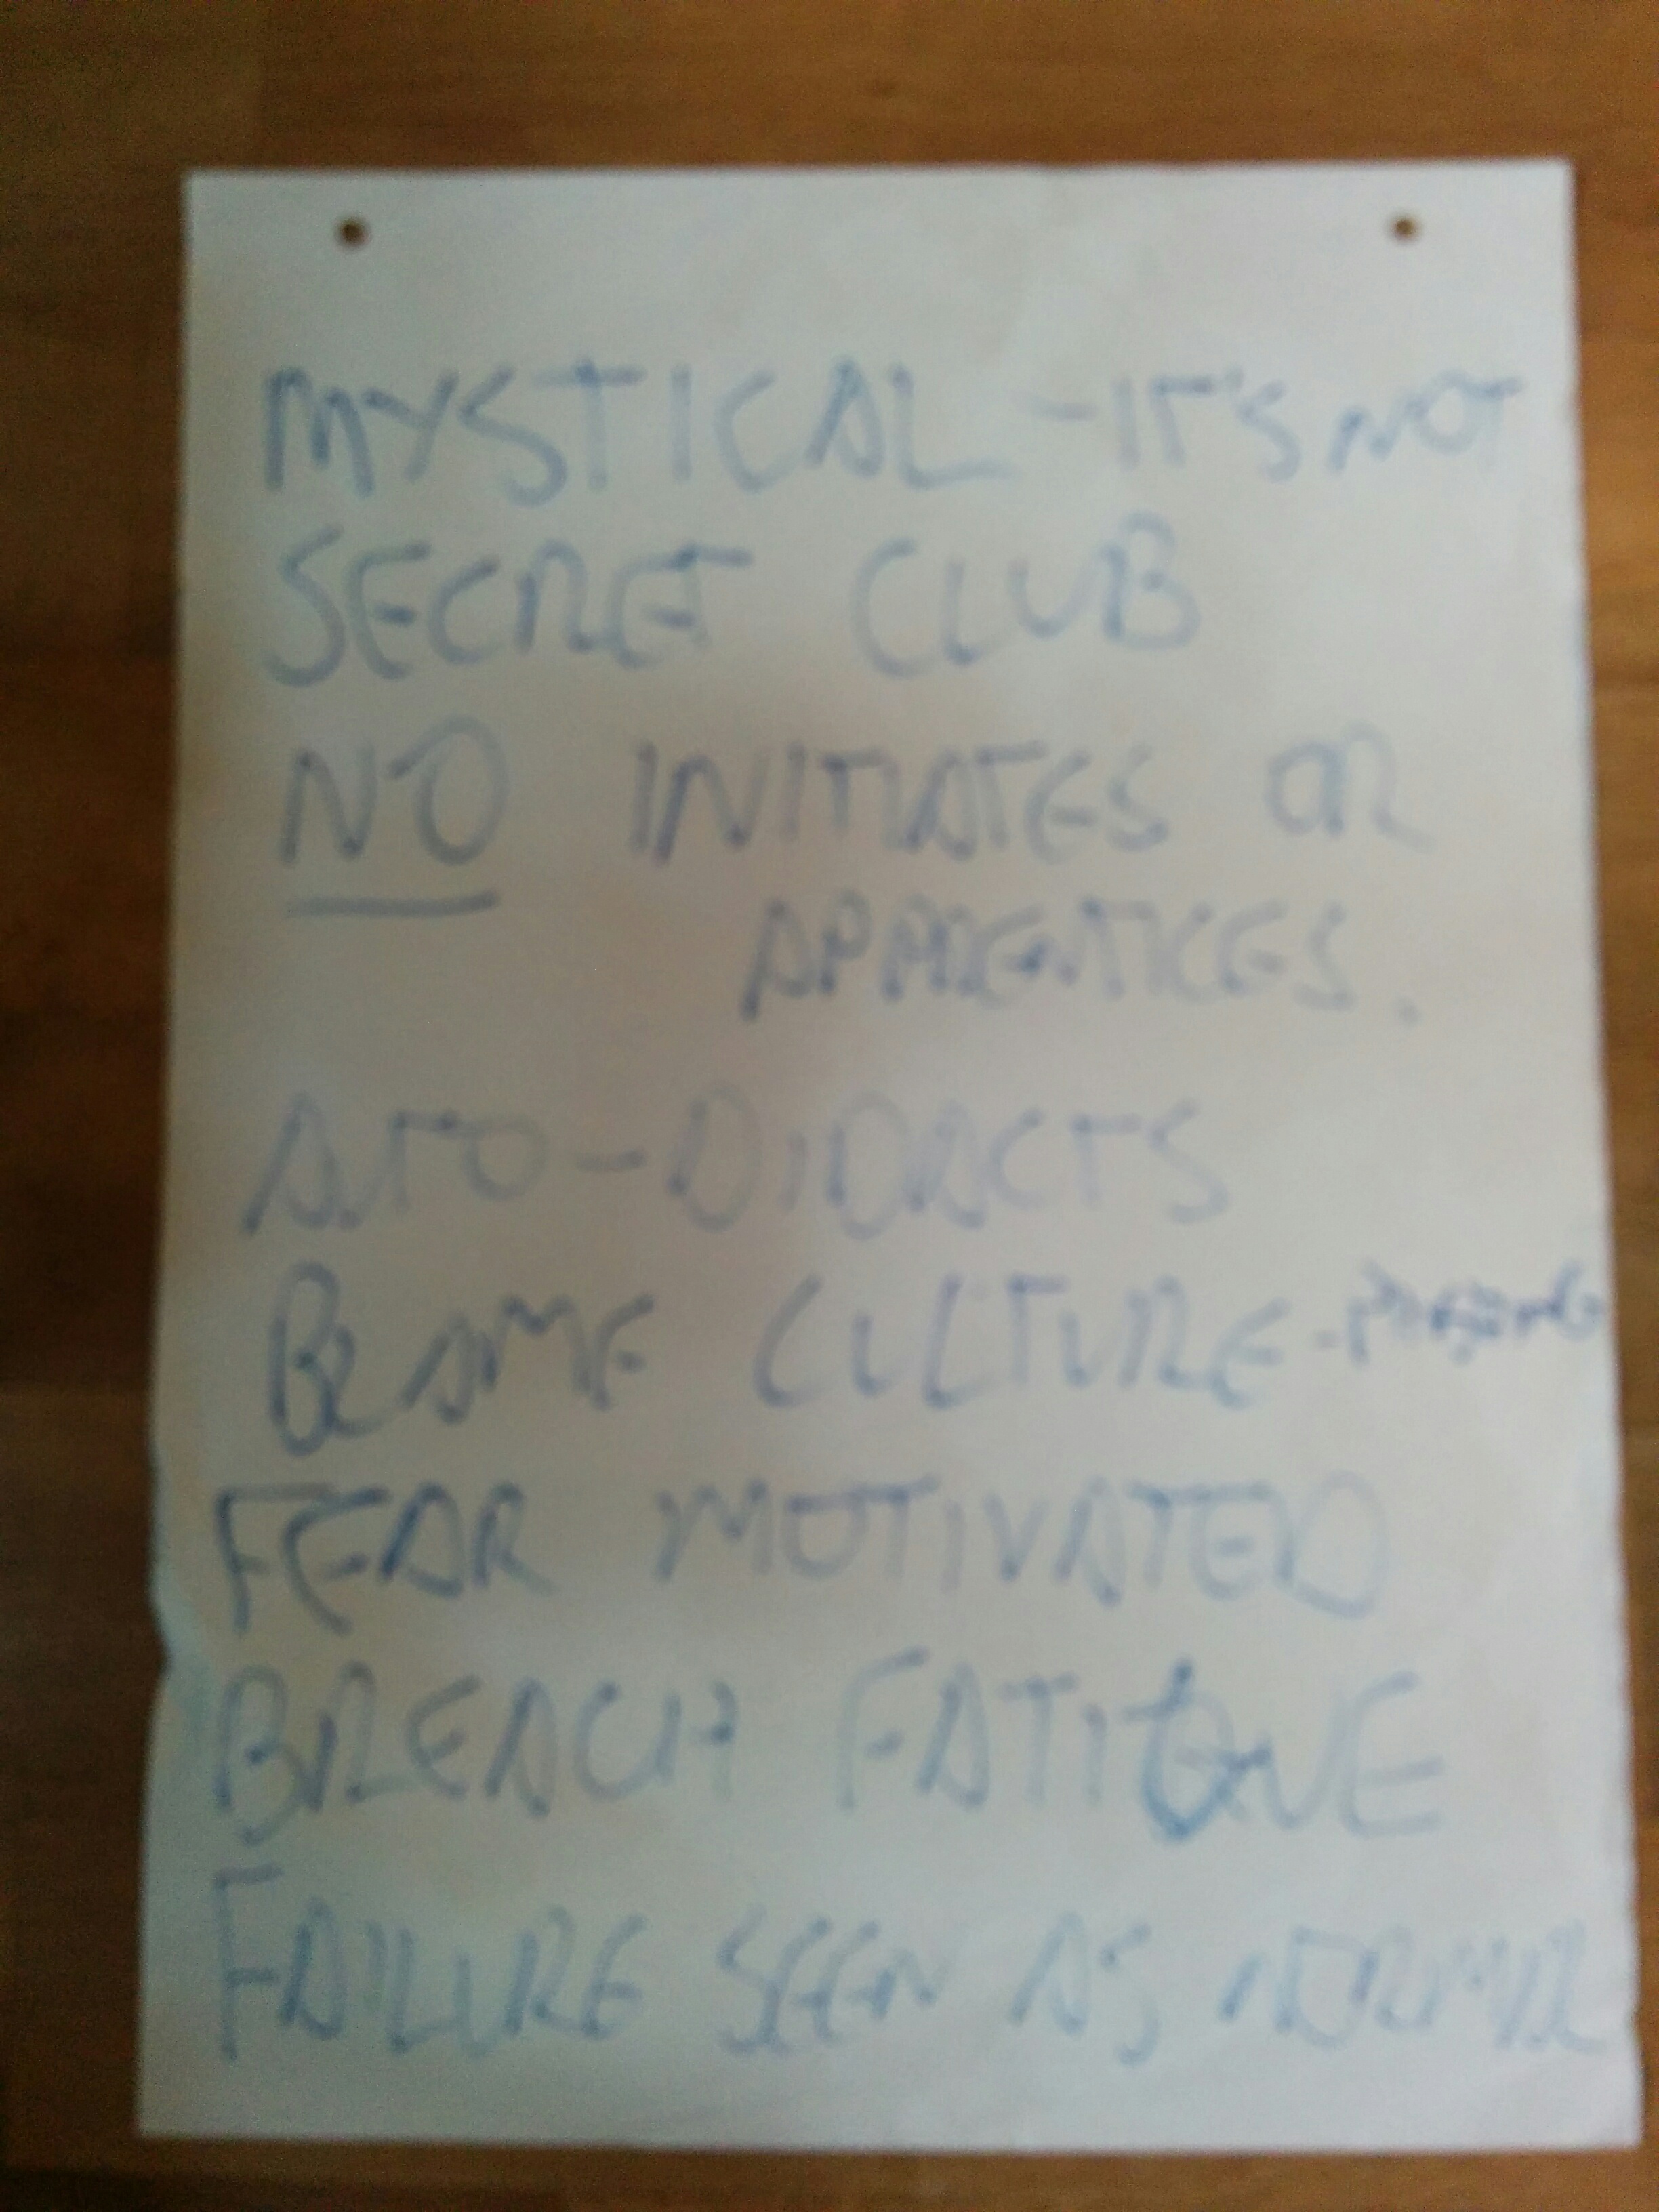 MYSTICAL - IT'S NOT
SECRET CLUB
NO INITIATES OR
APPRENTICES.
AUTO-DIDACTS
BLAME CULTURE -
FEAR MOTIVATED
BREACH FATIGUE
FAILURE SEEN AS NORMAL